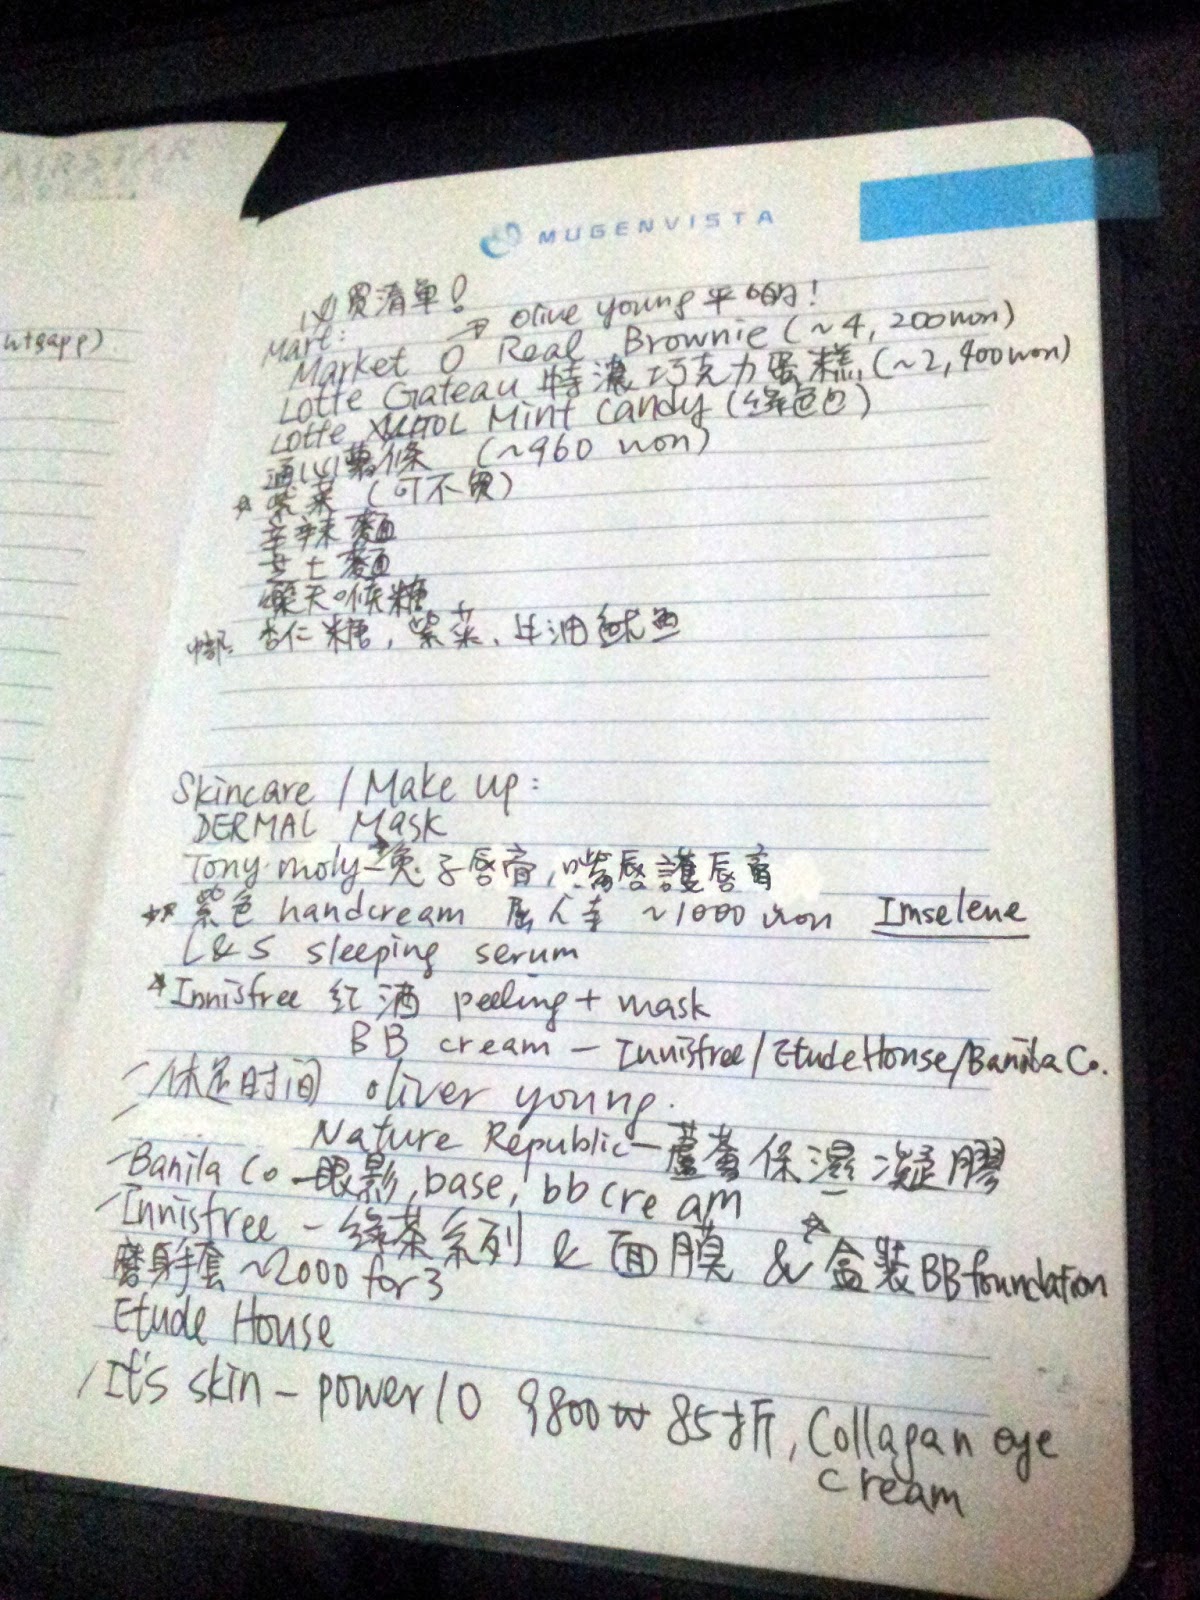 MUGENVISTA
htsapp)
必買清單!
Mart: → olive young 平 的!
Market O Real Brownie (~4,200won)
Lotte Gateau 特濃巧克力蛋糕 (~2,400won)
Lotte XYLITOL Mint Candy (綠色包)
通心薯條 (~960 won)
☆ 紫菜 (可不買)
辛辣麵
芝士麵
樂天喉糖
杏仁糖, 紫菜, 牛油魷魚
Skincare / Make up:
DERMAL Mask
Tony moly - 兔子唇膏, 嘴唇護唇膏
☆ 紫色 handcream 屈人寺 ~1000 won Imselene
L&S sleeping serum
☆ Innisfree 紅酒 peeling + mask
BB cream - Innisfree/Etude House/Banila Co.
/休足时间 oliver young.
Nature Republic - 蘆薈保濕凝膠
/Banila Co - 眼影, base, bb cream
/Innisfree - 綠茶系列 & 面膜 & ☆盒裝BB foundation
磨身手套 ~2000 for 3
Etude House
/It's skin - power 10 9800₩ 85折, Collagan eye
cream